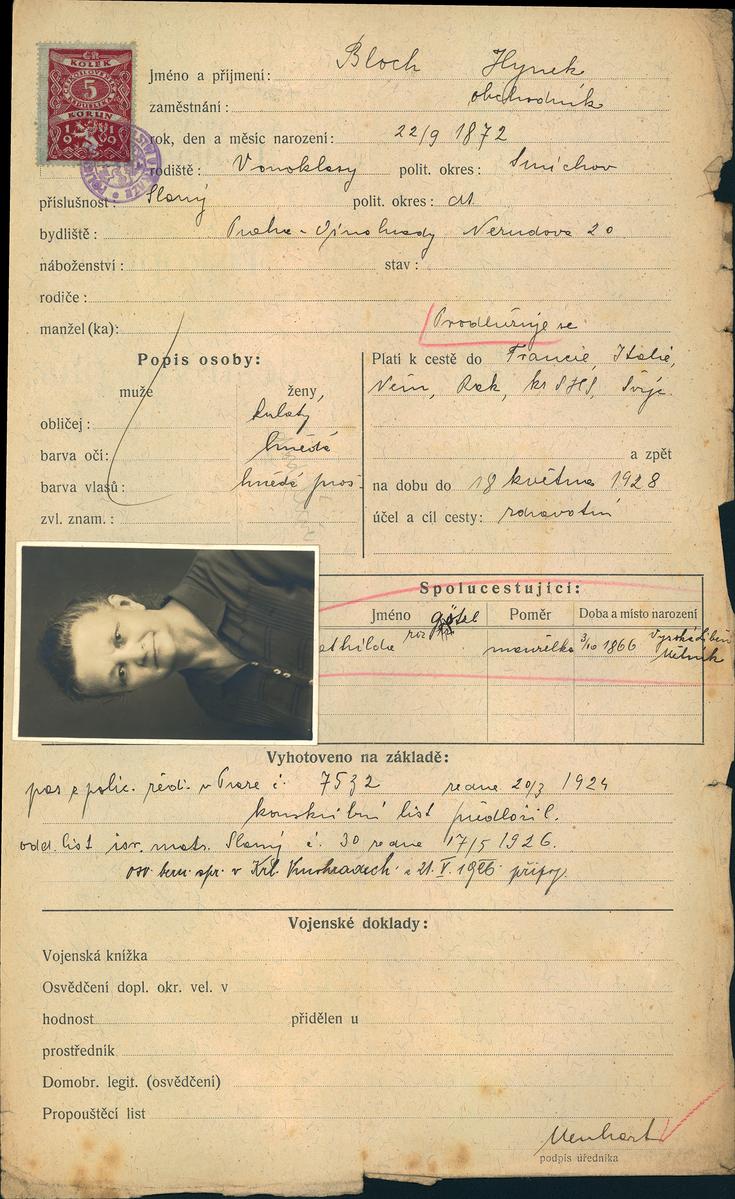 KOLEK
5
KORUN
1919
Jméno a příjmení: Bloch Hynek
zaměstnání: obchodník
rok, den a měsíc narození: 22/9 1872
rodiště: Vonoklasy polit. okres: Smíchov
příslušnost: Slaný polit. okres: dt
bydliště: Praha-Vinohrady Nerudova 20
náboženství: stav:
rodiče:
manžel (ka): Prodlužuje se
Popis osoby:
muže ženy,
obličej: kulatý
barva očí: hnědá
barva vlasů: hnědé proš.
zvl. znam.:
Platí k cestě do Francie, Italie,
Něm, Rak, kr SHS, Švýc.
a zpět
na dobu do 18 května 1928
účel a cíl cesty: zdravotní
Spolucestující:
Jméno Poměr Doba a místo narození
athilda roz manželka 3/10 1866 Mělník
Vyhotoveno na základě:
pas z polic. ředi. v Praze č. 7532 ze dne 20/3 1924
konskribční list předložil.
odd. list isr. matr. Slaný č. 30 ze dne 17/5 1926.
osv. bern. spr. v Král. Vinohradech z 21. V. 1926 připoj.
Vojenské doklady:
Vojenská knížka
Osvědčení dopl. okr. vel. v
hodnost přidělen u
prostředník
Domobr. legit. (osvědčení)
Propouštěcí list
Menhart
podpis úředníka